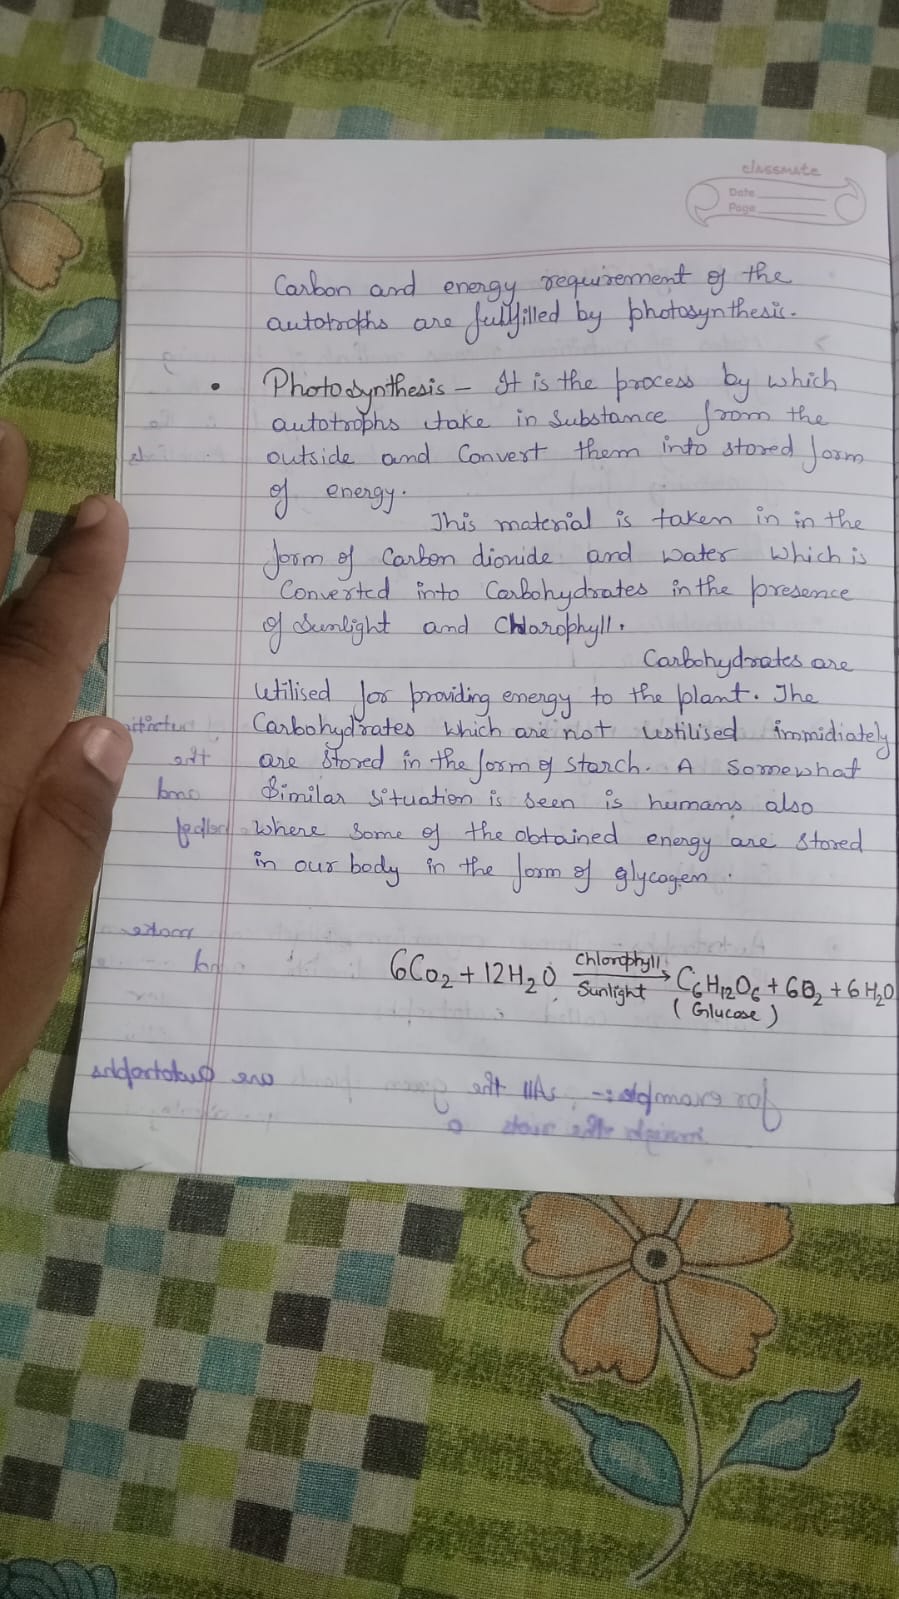 classmate
Date
Page
Carbon and energy requirement of the
autotroths are fullfilled by photosynthesis.
• Photosynthesis - It is the process by which
autotrophs take in substance from the
outside and Convert them into stored form
of energy.
This material is taken in in the
form of Carbon dionide and water which is
Converted into Carbohydrates in the presence
of Sunlight and Chlorophyll.
Carbohydrates are
utilised for providing energy to the plant. The
Carbohydrates which are not ustilised immidiately
are stored in the form of starch. A somewhat
Similar situation is seen is humans also
where some of the obtained energy are stored
in our body in the form of glycogen.
6CO2 + 12H2O Chlorophyll Sunlight → C6H12O6 + 6O2 + 6H2O
(Glucose)